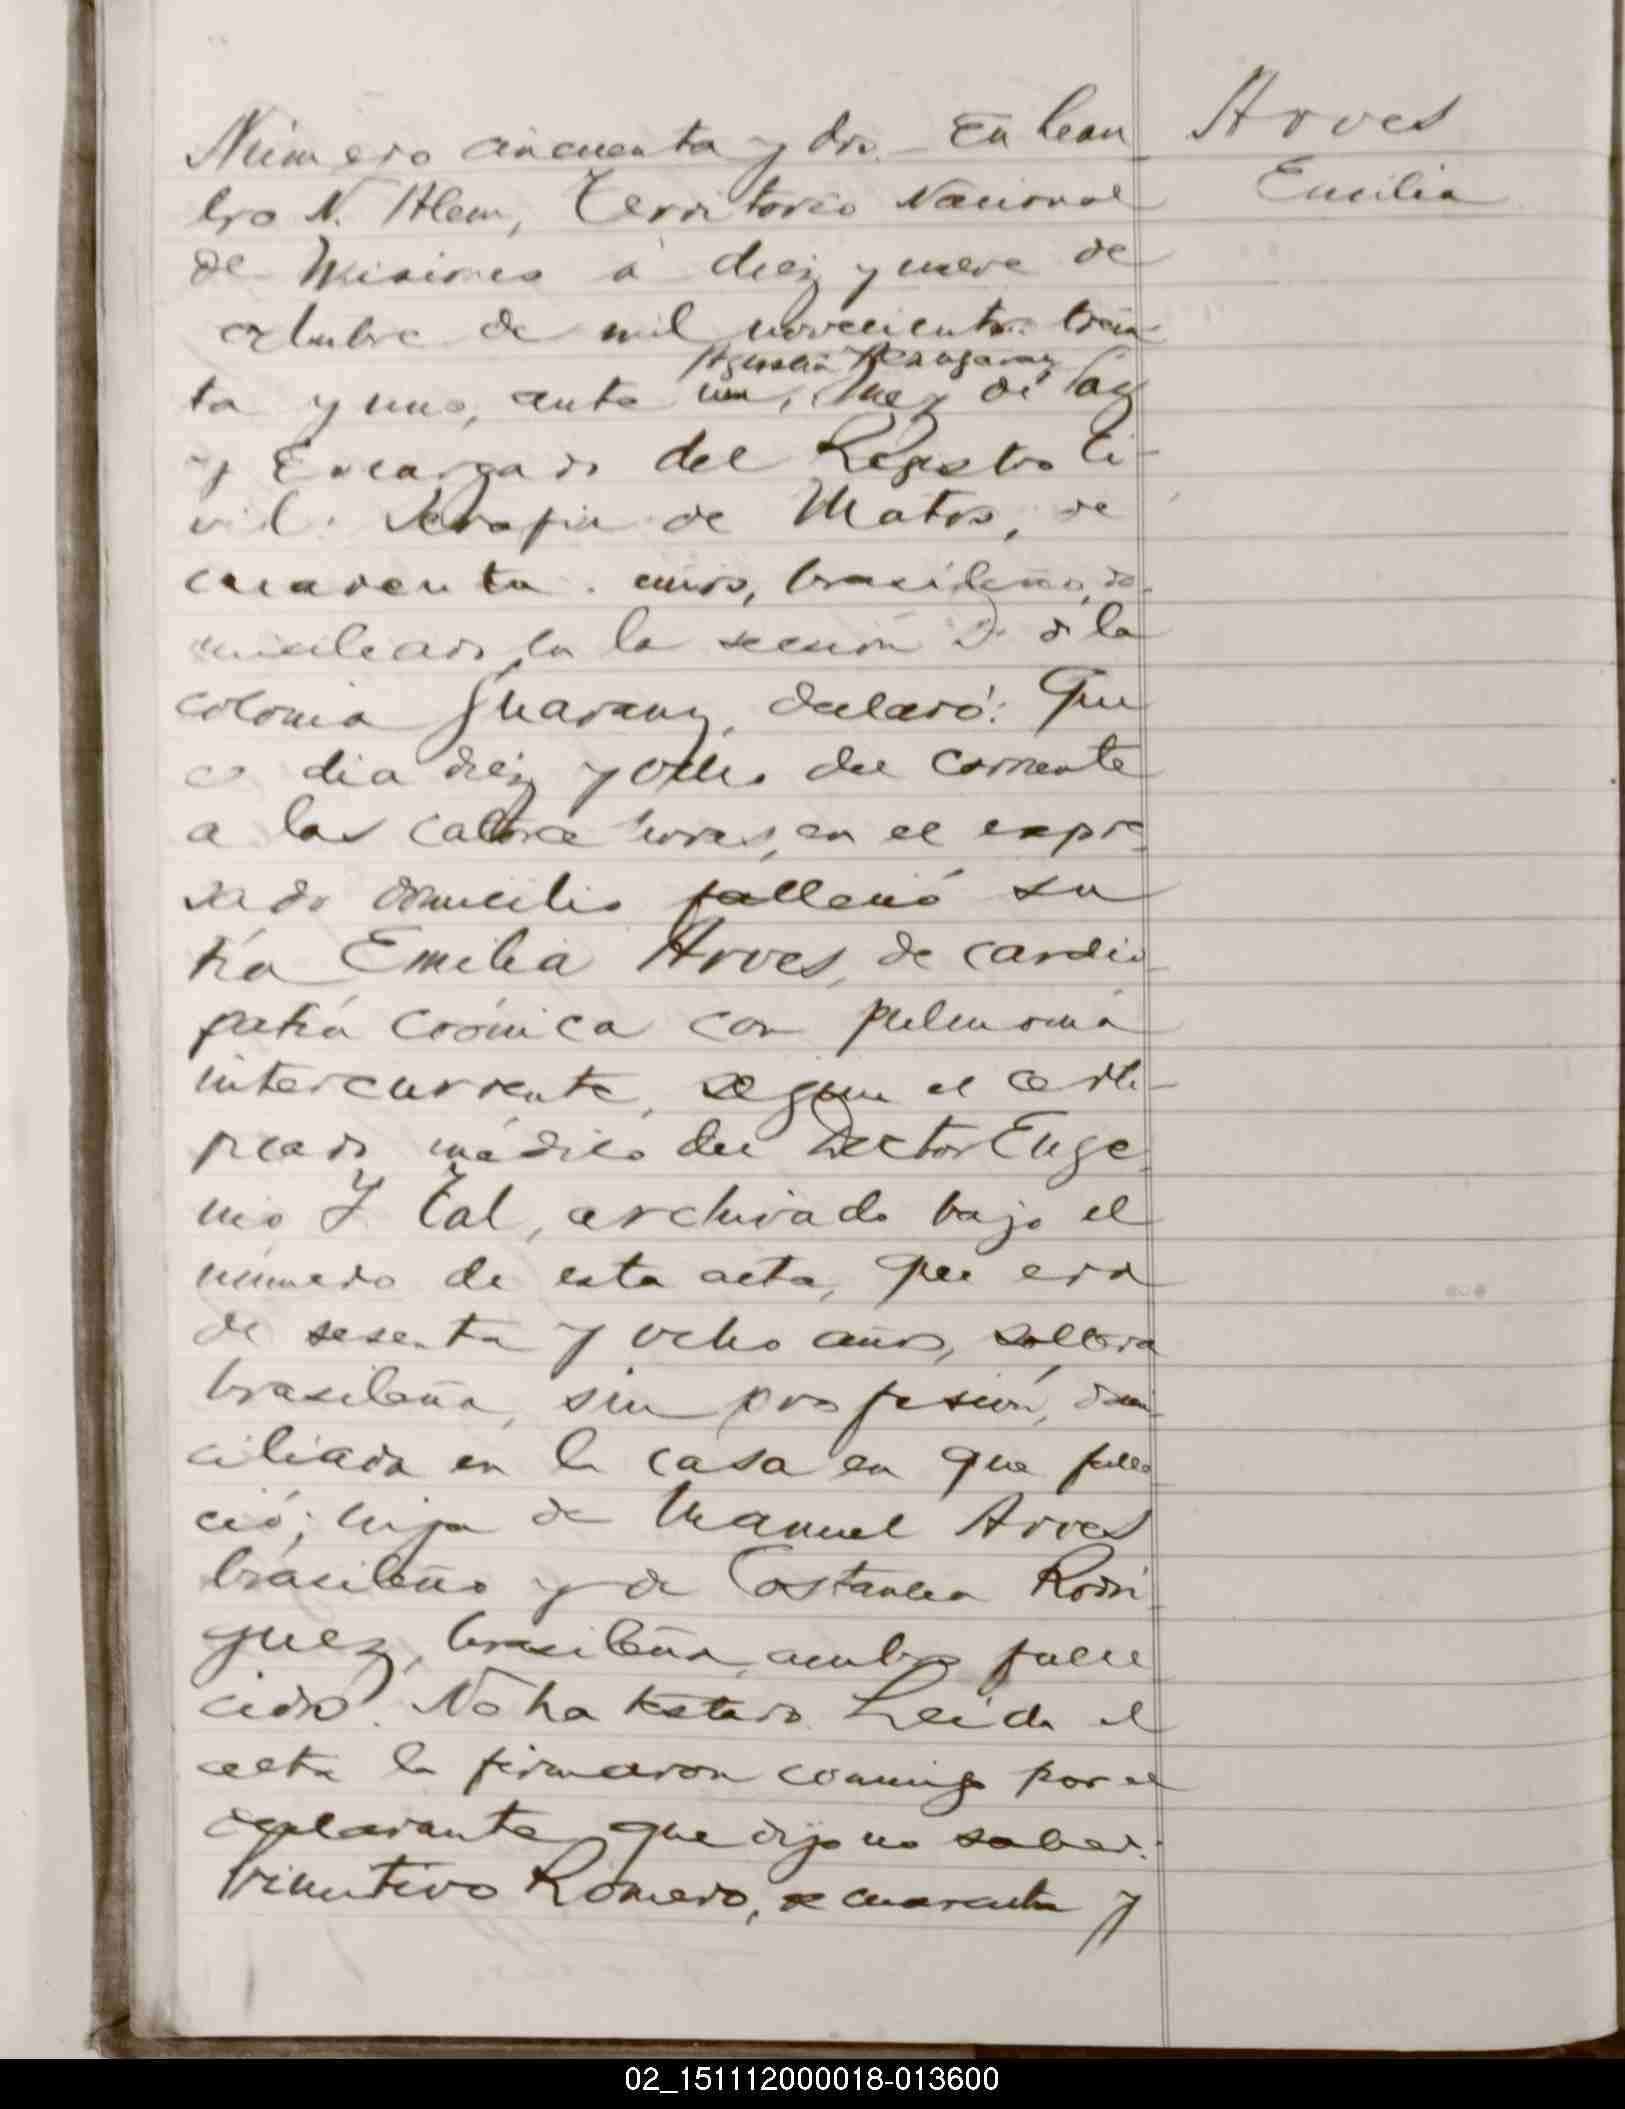 Número cincuenta y dos.- En Lean-
dro N. Alem, Territorio Nacional
de Misiones a diez y nueve de
octubre de mil novecientos trein-
ta y uno, ante mi, Juez de Paz
y Encargado del Registro Ci-
vil: Serapin de Matos, de
cuarenta años, brasileño, do-
miciliado en la sección D. de la
colonia Guarany, declaró: Que
el dia diez y ocho del corriente
a las catorce horas, en el expre-
sado domicilio falleció su
tía Emilia Arves, de cardio-
patía crónica con pulmonía
intercurrente, segun el certi-
ficado médico del Doctor Euge-
nio J. Tal, archivado bajo el
número de esta acta, que era
de sesenta y ocho años, soltera
brasileña, sin profesión, domi-
ciliada en la casa en que falle-
ció; hija de Manuel Arves
brasileño y de Costancia Rodri-
guez, brasileña, ambos falle
cidos. No ha testado. Leida el
acta la firmaron conmigo por el
declarante que dijo no saber.
Primitivo Romero, de cuarenta y
Arves
Emilia
02_151112000018-013600